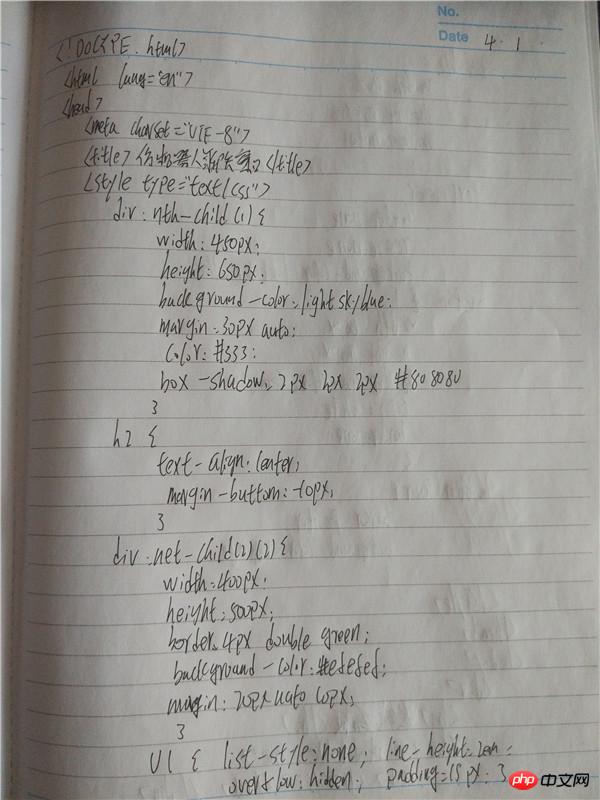 No.
Date 4. 1.
<!DOCTYPE. html>
<html lang="en">
<head>
<meta charset="UTF-8">
<title> 机器人 </title>
<style type="text/css">
div:nth-child(1){
width:450px;
height:650px;
background-color:lightskyblue;
margin:30px auto;
color:#333;
box-shadow:2px 2px 2px #808080
}
h2 {
text-align:center;
margin-buttom:-10px;
}
div:net-child(2)(2){
width:400px;
height:500px;
border:4px double green;
background-color:#efefef;
margin:20px auto 10px;
}
Ul { list-style:none; line-height:2em;
overflow:hidden; padding:15px; }
php 中文网